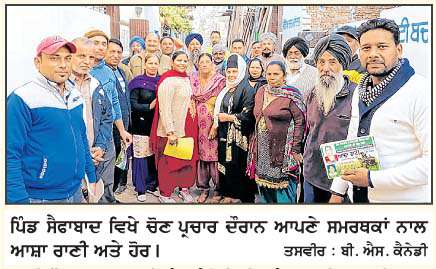 ਪਿੰਡ ਸੈਫਾਬਾਦ ਵਿਖੇ ਚੋਣ ਪ੍ਰਚਾਰ ਦੌਰਾਨ ਆਪਣੇ ਸਮਰਥਕਾਂ ਨਾਲ
ਆਸ਼ਾ ਰਾਣੀ ਅਤੇ ਹੋਰ। ਤਸਵੀਰ : ਬੀ. ਐਸ. ਕੈਨੇਡੀ